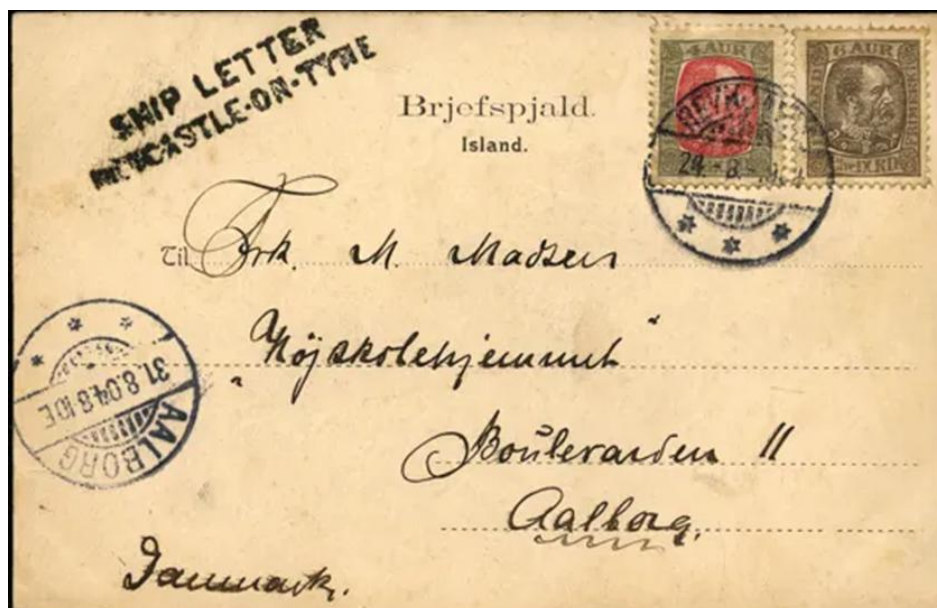 SHIP LETTER
NEWCASTLE-ON-TYNE
Brjefspjald.
Island.
4 AUR
6 AUR
REYKJAVIK
24-8-
Til Frk. M. Madsen
"Højskolehjemmet"
Boulevarden 11
Aalborg.
Danmark.
AALBORG
31.8.04.8-10E